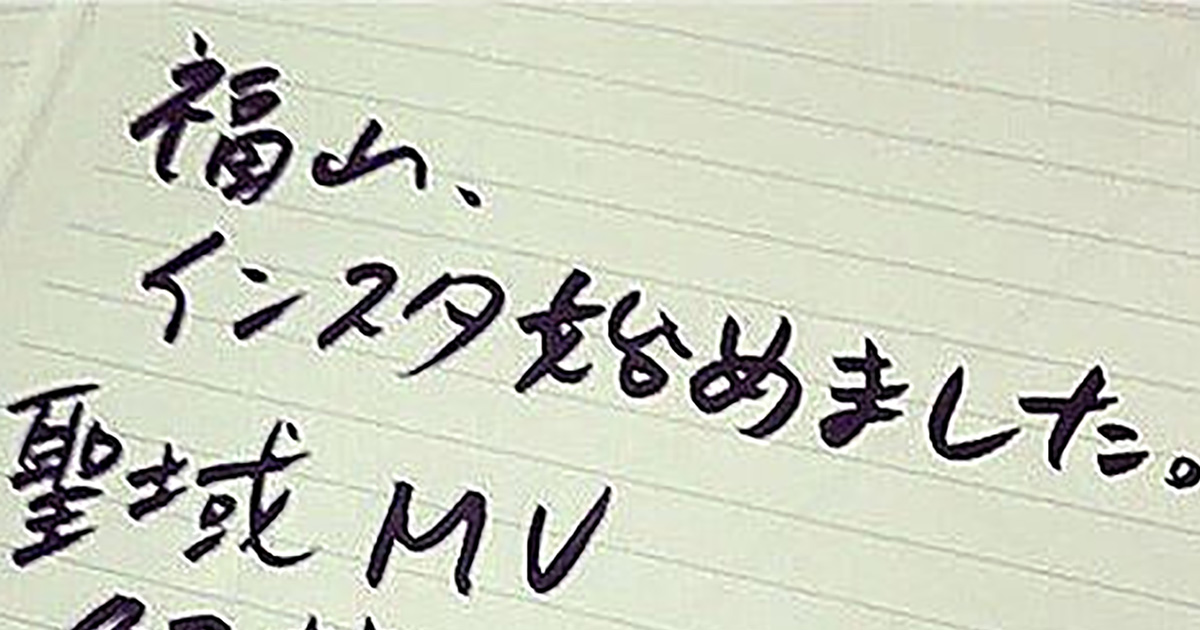 福山、
インスタ始めました。
聖域 MV